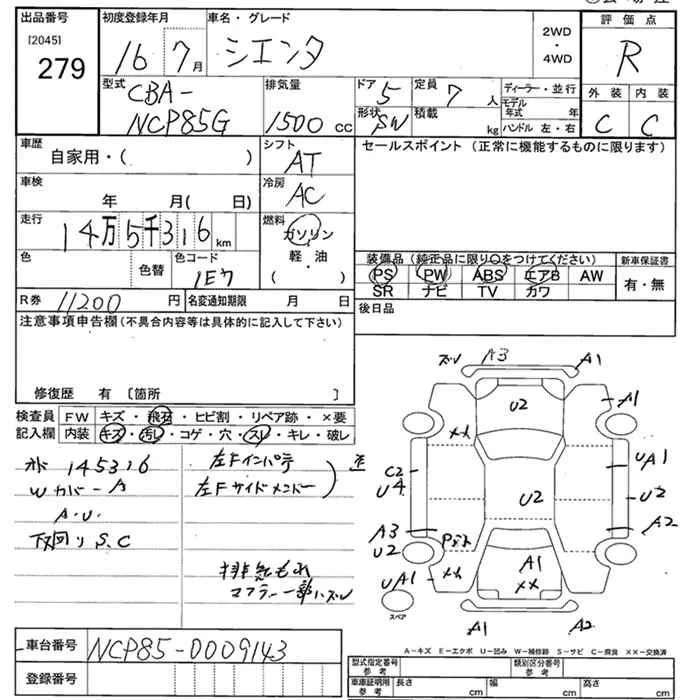 出品番号 初度登録年月 車名・グレード 評価点
[2045]
279
16 7月 シエンタ 2WD・4WD R
型式 CBA-NCP85G 排気量 1500cc ドア 5 定員 7人 ディーラー・並行
形状 SW 積載 kg モデル年式 年 外装 内装
ハンドル 左・右 C C
車歴 自家用・( ) シフト AT セールスポイント (正常に機能するものに限ります)
車検 年 月(日) 冷房 AC
走行 14万5千316km 燃料 ガソリン・軽油・( )
色 色替 色コード 1E7
装備品(純正品に限り○をつけてください) 新車保証書
PS PW ABS エアB AW 有・無
SR ナビ TV カワ
R券 11200円 名変通知期限 月 日 後日品
注意事項申告欄(不具合内容等は具体的に記入して下さい)
修復歴 有 〔箇所 〕
検査員記入欄 FW キズ・飛石・ヒビ割・リペア跡・×要
内装 キズ・汚レ・コゲ・穴・スレ・キレ・破レ
145316
Wカバー A
A.U.
下回り S.C
左Fインパネ
左Fサイドメンバー
排気もれ
マフラー一部ハズレ
ズレ A3 A1
U2 A1
××
C2 UA1
U4 U2 U2
A3 A2
U2
A1
UA1 ×× ××
スペア
A1 A2
A-キズ E-エクボ U-凹み W-補修跡 S-サビ C-腐食 ××-交換済
車台番号 NCP85-0009143
登録番号
型式指定番号 参考 類別区分番号 参考
車庫証明用 参考 長さ cm 幅 cm 高さ cm